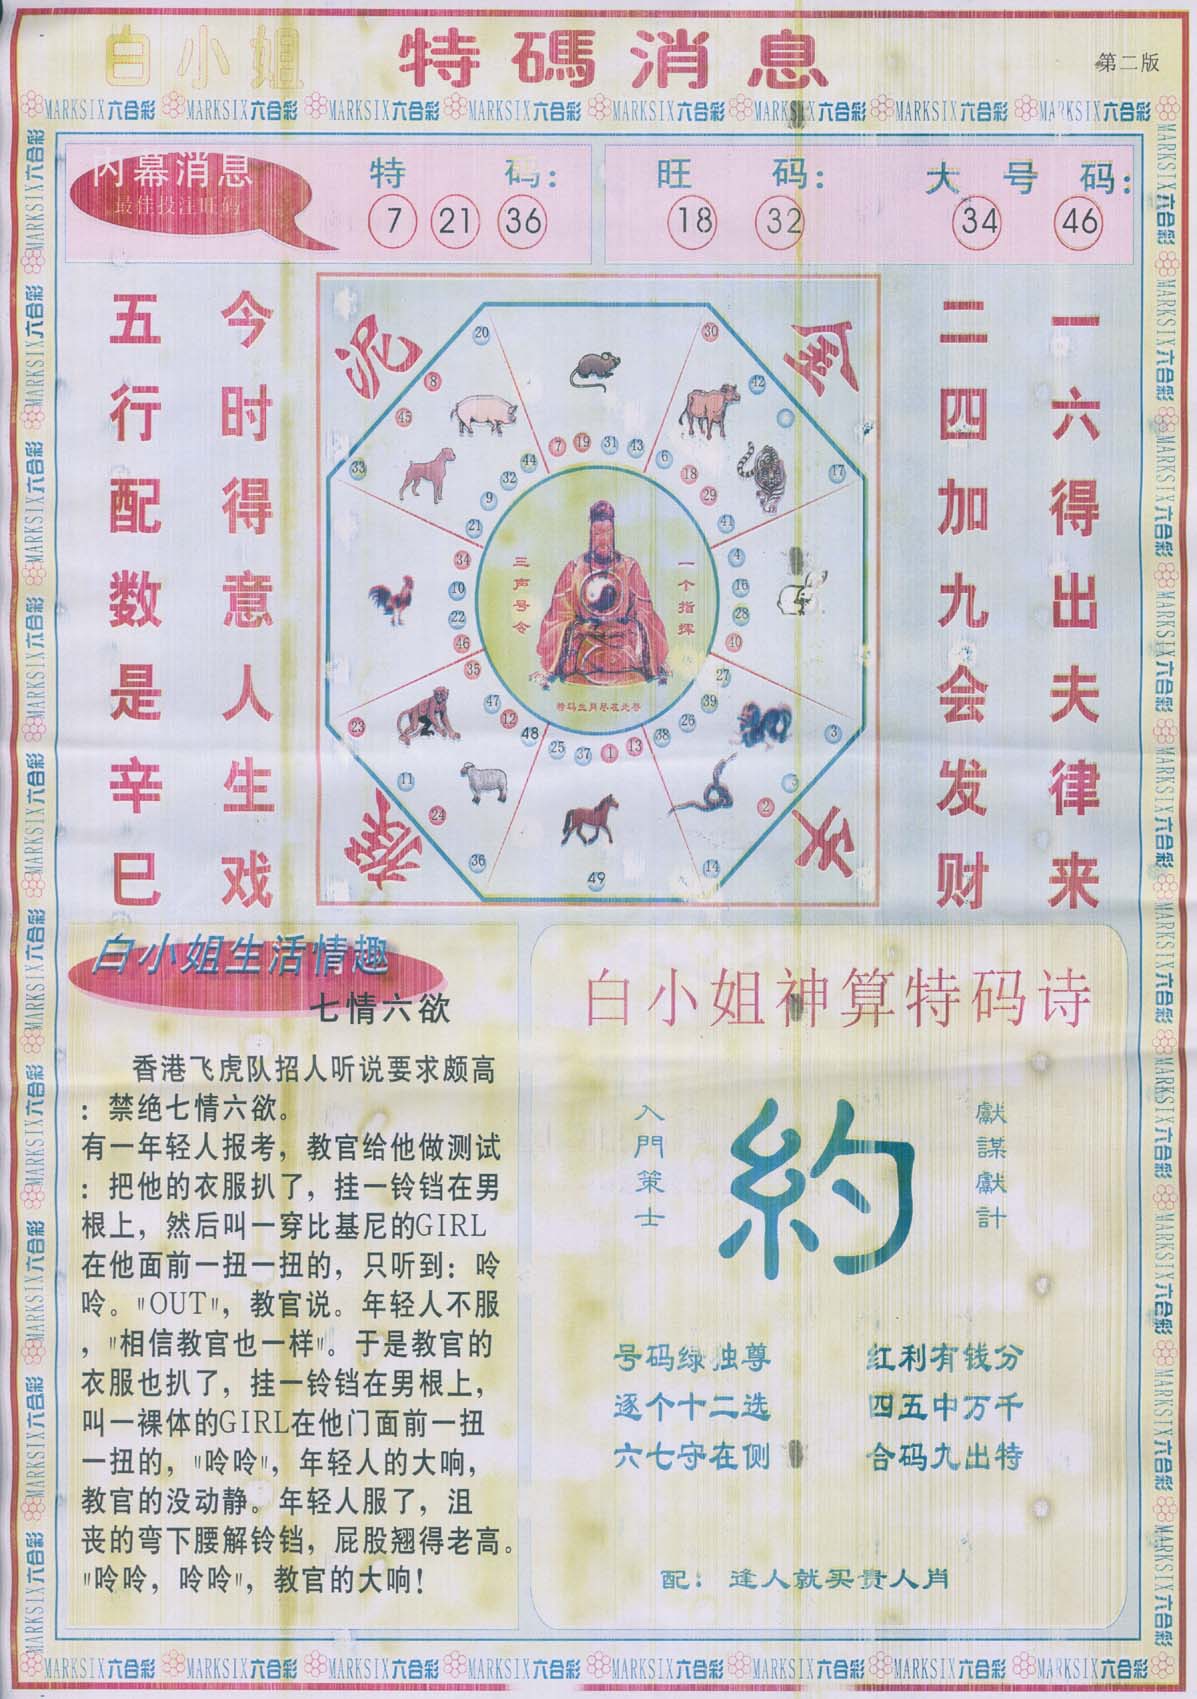 白小姐 特碼消息
第二版
MARKSIX六合彩 MARKSIX六合彩 MARKSIX六合彩 MARKSIX六合彩 MARKSIX六合彩 MARKSIX六合彩 MARKSIX六合彩 MARKSIX六合彩
内幕消息
最佳投注旺码
特码:
7 21 36
旺码:
18 32
大号码:
34 46
一六得出夫律来
二四加九会发财
今时得意人生戏
五行配数是辛巳
泥
金
天
20
30
8
45
42
33
17
7 19 31 43
6 18 29 41
44 32 9 21
4 16 28 40
34 10 22 46
27 39 26 38
35 47 12 48
25 37 1 13
23
11
24
36
49
14
2
5
3
一个指挥
三声号令
特码生肖尽在此卷
白小姐生活情趣
七情六欲
香港飞虎队招人听说要求颇高
:禁绝七情六欲。
有一年轻人报考，教官给他做测试
:把他的衣服扒了，挂一铃铛在男
根上，然后叫一穿比基尼的GIRL
在他面前一扭一扭的，只听到:呤
呤。"OUT"，教官说。年轻人不服
，"相信教官也一样"。于是教官的
衣服也扒了，挂一铃铛在男根上，
叫一裸体的GIRL在他门面前一扭
一扭的，"呤呤"，年轻人的大响，
教官的没动静。年轻人服了，沮
丧的弯下腰解铃铛，屁股翘得老高。
"呤呤，呤呤"，教官的大响!
白小姐神算特码诗
獻謀獻計
約
入門策士
号码绿独尊 红利有钱分
逐个十二选 四五中万千
六七守在侧 合码九出特
配: 逢人就买贵人肖
MARKSIX六合彩 MARKSIX六合彩 MARKSIX六合彩 MARKSIX六合彩 MARKSIX六合彩 MARKSIX六合彩 MARKSIX六合彩 MARKSIX六合彩